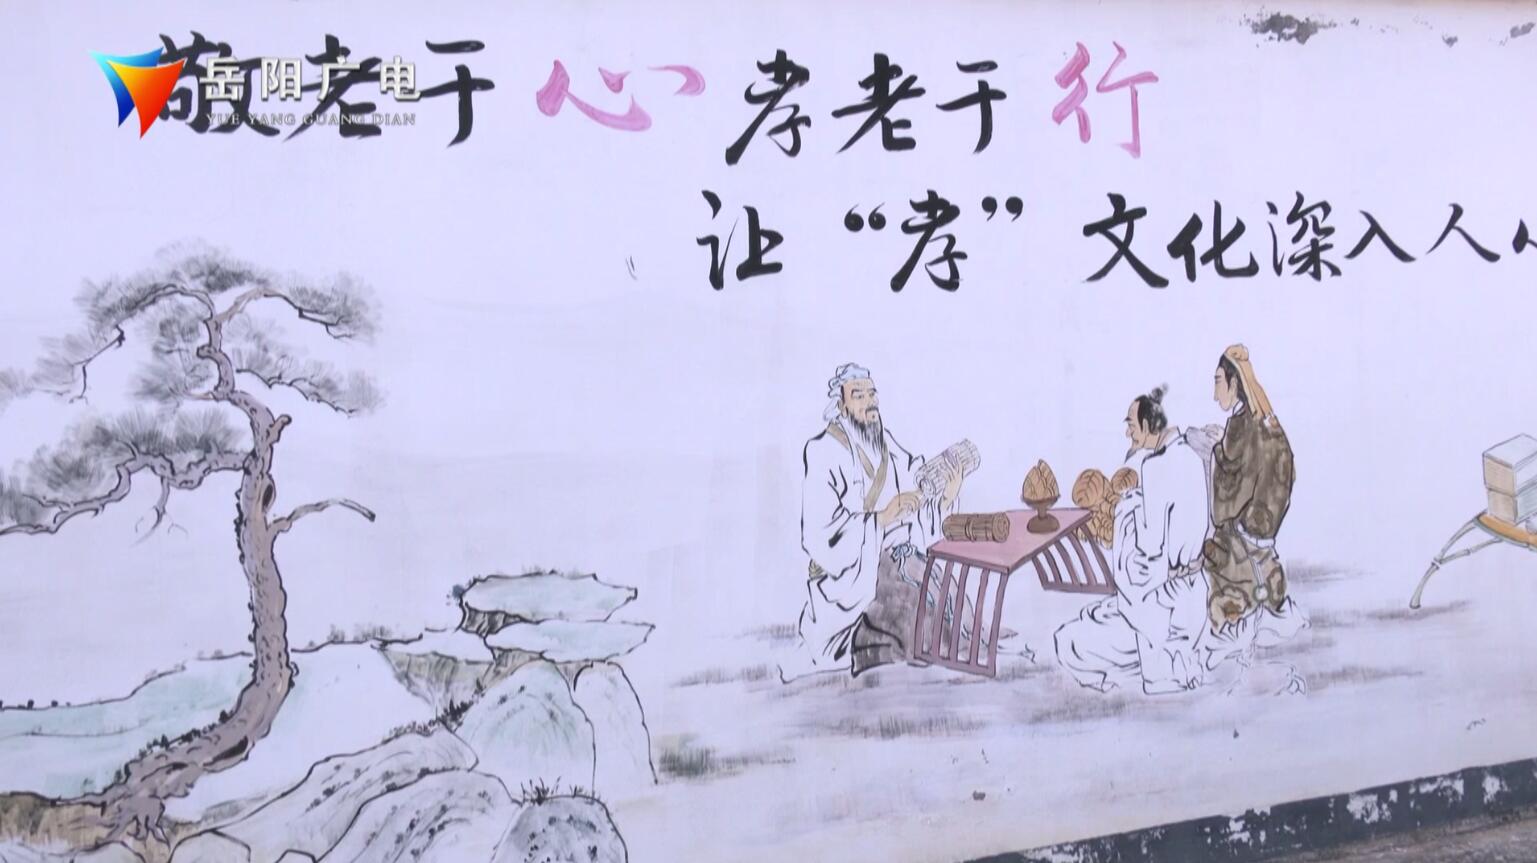 岳阳广电
YUE YANG GUANG DIAN
敬老于心 孝老于行
让“孝”文化深入人